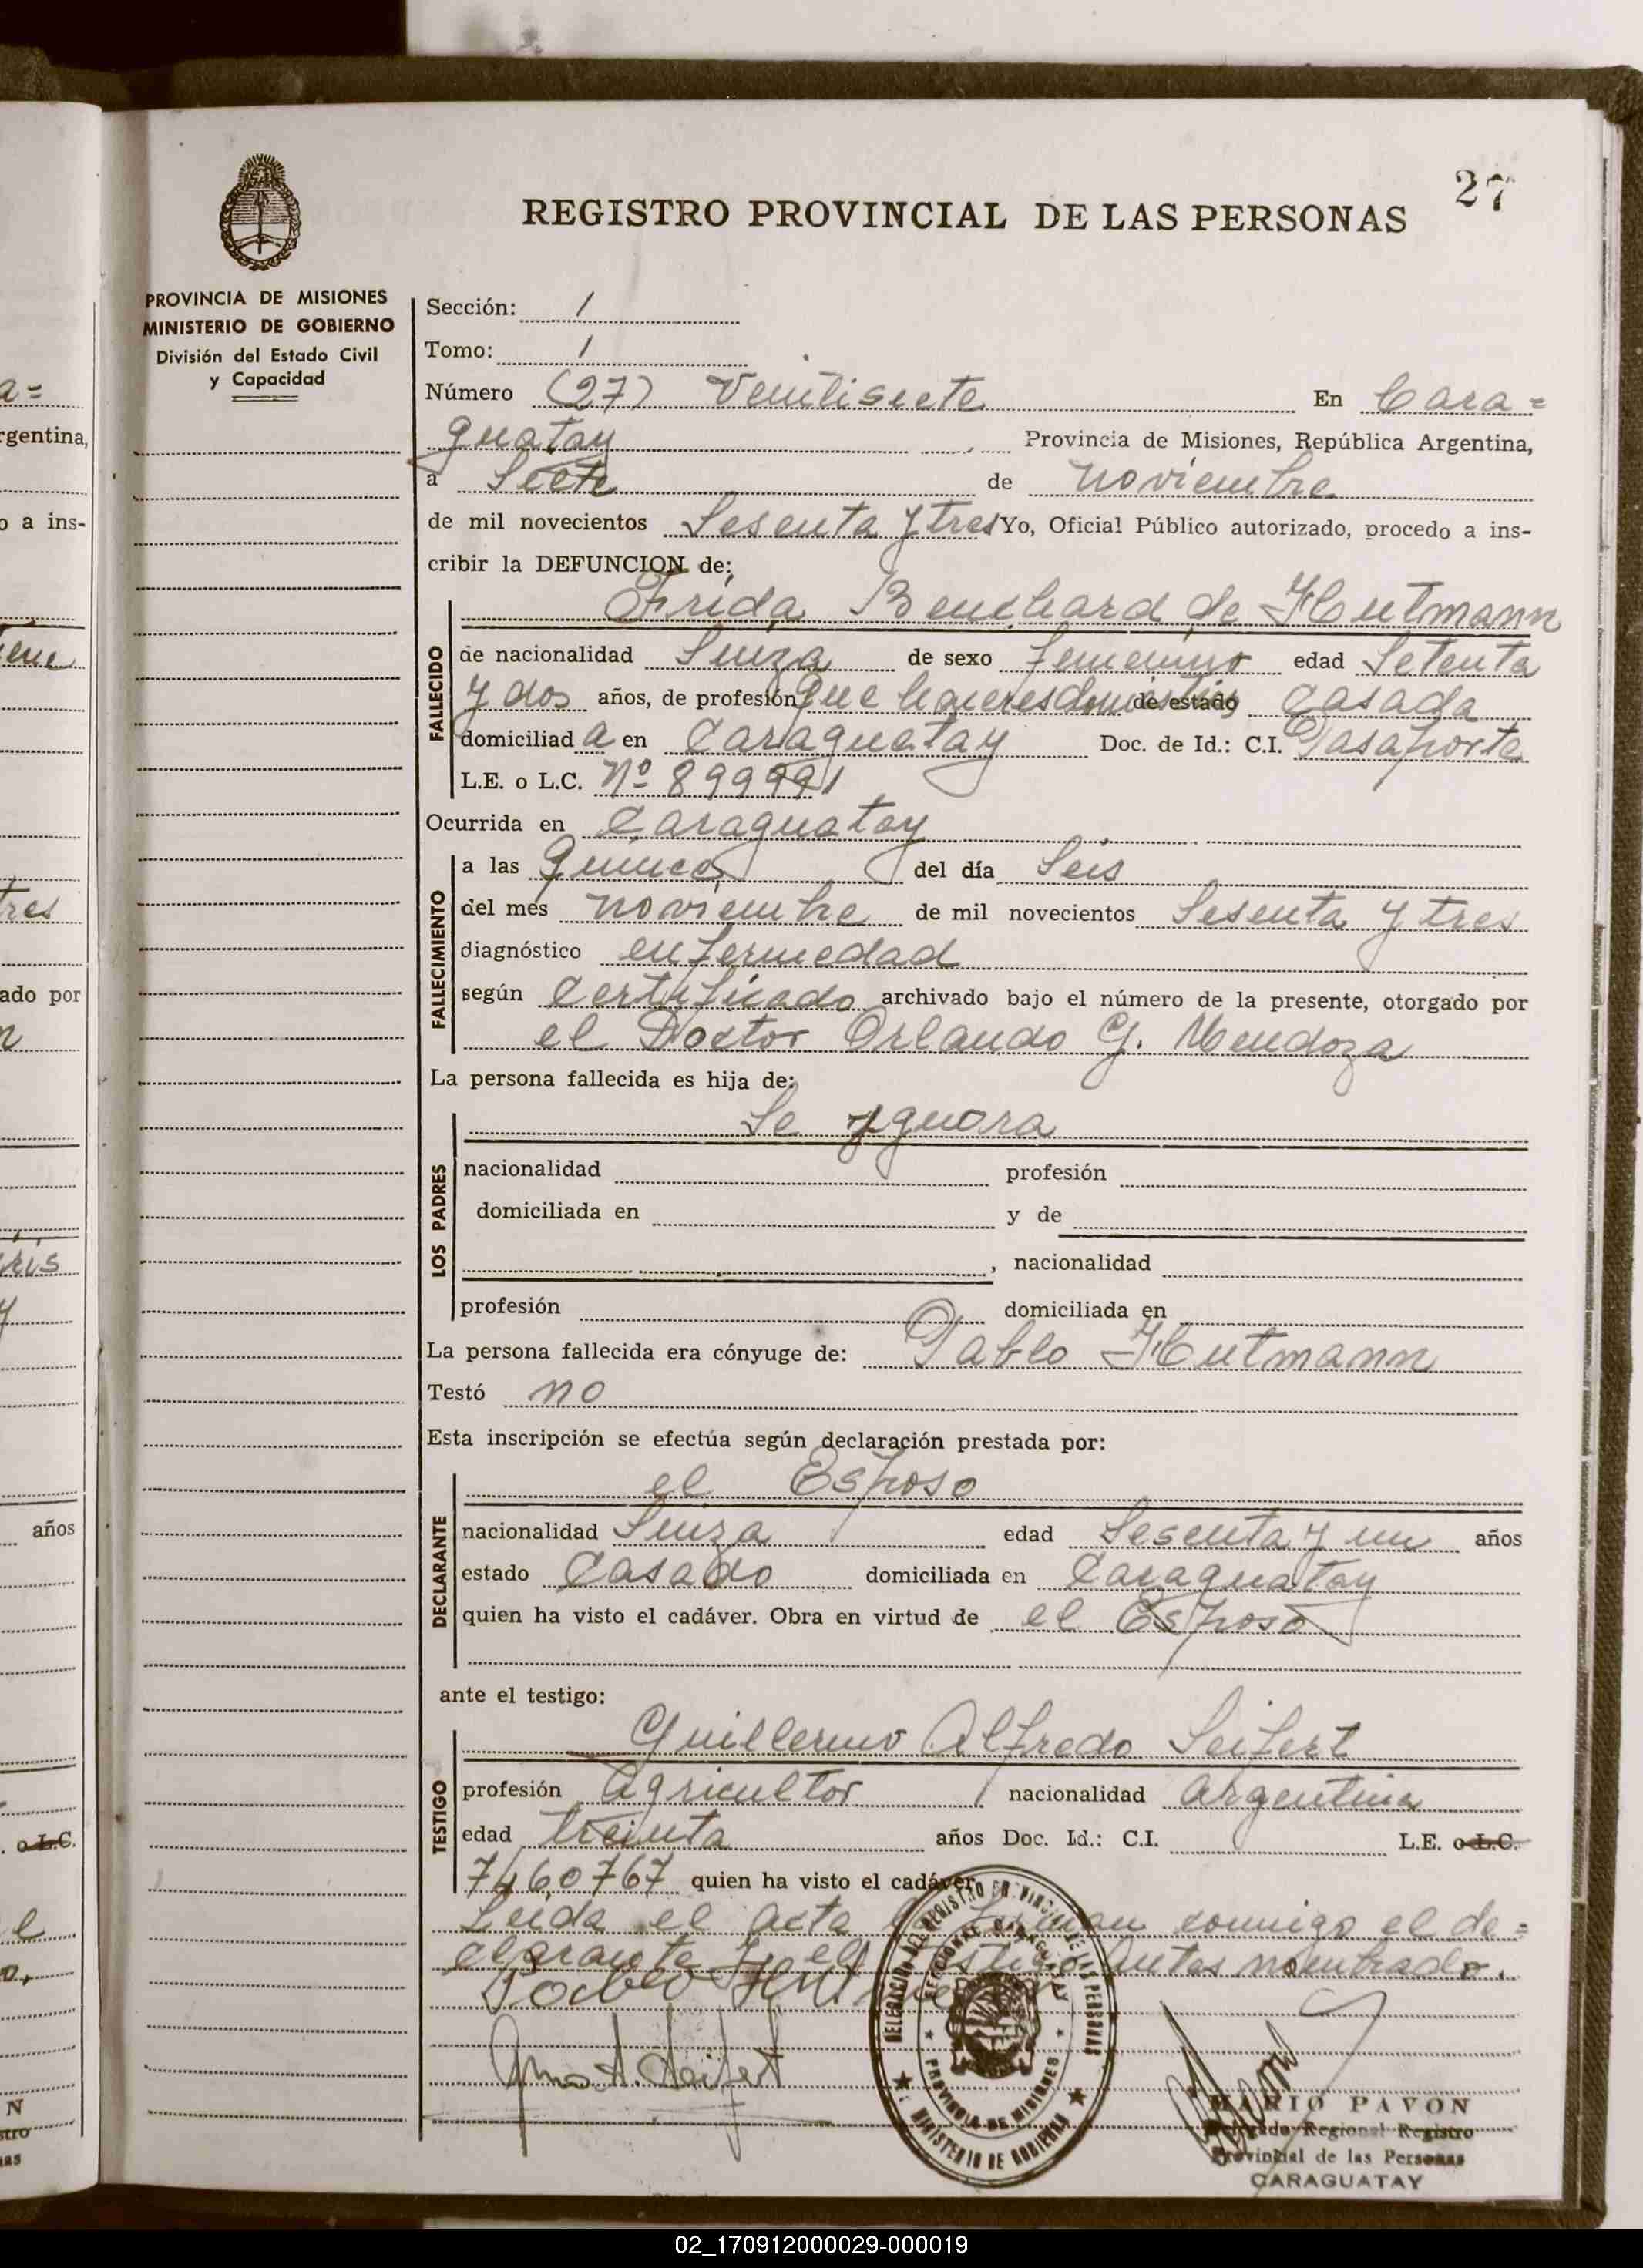 27
REGISTRO PROVINCIAL DE LAS PERSONAS
PROVINCIA DE MISIONES
MINISTERIO DE GOBIERNO
División del Estado Civil
y Capacidad
Sección: 1
Tomo: 1
Número (27) Veintisiete En Cara=
guatay Provincia de Misiones, República Argentina,
a Siete de noviembre
de mil novecientos Sesenta y tres Yo, Oficial Público autorizado, procedo a ins-
cribir la DEFUNCION de:
Frida Benchard de Hutmann
FALLECIDO
de nacionalidad Suiza de sexo femenino edad Setenta
y dos años, de profesión que haceres domésticos de estado Casada
domiciliada en Caraguatay Doc. de Id.: C.I. Pasaporte
L.E. o L.C. Nº 899991
Ocurrida en Caraguatay
FALLECIMIENTO
a las quince del día Seis
del mes noviembre de mil novecientos Sesenta y tres
diagnóstico enfermedad
según Certificado archivado bajo el número de la presente, otorgado por
el Doctor Orlando G. Mendoza
La persona fallecida es hija de:
Se ygnora
LOS PADRES
nacionalidad profesión
domiciliada en y de
, nacionalidad
profesión domiciliada en
La persona fallecida era cónyuge de: Pablo Hutmann
Testó no
Esta inscripción se efectúa según declaración prestada por:
el Esposo
DECLARANTE
nacionalidad Suiza edad Sesenta y un años
estado Casado domiciliada en Caraguatay
quien ha visto el cadáver. Obra en virtud de el Esposo
ante el testigo:
Guillermo Alfredo Seifert
TESTIGO
profesión Agricultor nacionalidad Argentina
edad treinta años Doc. Id.: C.I. L.E. o L.C.
7460767 quien ha visto el cadáver.
Leida el acta la firman conmigo el de=
clarante y el testigo antes nombrado.
Pablo Hutmann
Gmo A. Seifert
DELEGACION DEL REGISTRO PROVINCIAL DE LAS PERSONAS
SECCIONAL CARAGUATAY
PROVINCIA DE MISIONES
MINISTERIO DE GOBIERNO
MARIO PAVON
Delegado Regional Registro
Provincial de las Personas
CARAGUATAY
a=
rgentina,
o a ins-
tres
ado por
años
o L.C.
02_170912000029-000019